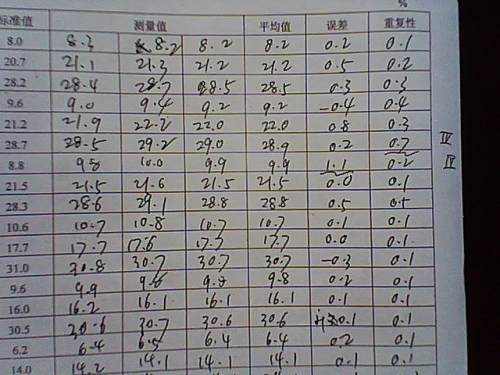 %
标准值 测量值 平均值 误差 重复性
8.0 8.3 8.2 8.2 8.2 0.2 0.1
20.7 21.1 21.3 21.2 21.2 0.5 0.2
28.2 28.4 28.7 28.5 28.5 0.3 0.3
9.6 9.0 9.4 9.2 9.2 -0.4 0.4
21.2 21.9 22.2 22.0 22.0 0.8 0.3
28.7 28.5 29.2 29.0 28.9 0.2 0.7 IV
8.8 9.8 10.0 9.9 9.9 1.1 0.2 IV
21.5 21.5 21.6 21.5 21.5 0.0 0.1
28.3 28.6 29.1 28.8 28.8 0.5 0.5
10.6 10.7 10.8 10.7 10.7 0.1 0.1
17.7 17.7 17.6 17.7 17.7 0.0 0.1
31.0 30.8 30.7 30.7 30.7 -0.3 0.1
9.6 9.9 9.8 9.8 9.8 0.2 0.1
16.0 16.2 16.1 16.1 16.1 0.1 0.1
30.5 30.6 30.7 30.6 30.6 0.1 0.1
6.2 6.4 6.5 6.4 6.4 0.2 0.1
14.0 14.2 14.1 14.1 14.1 0.1 0.1